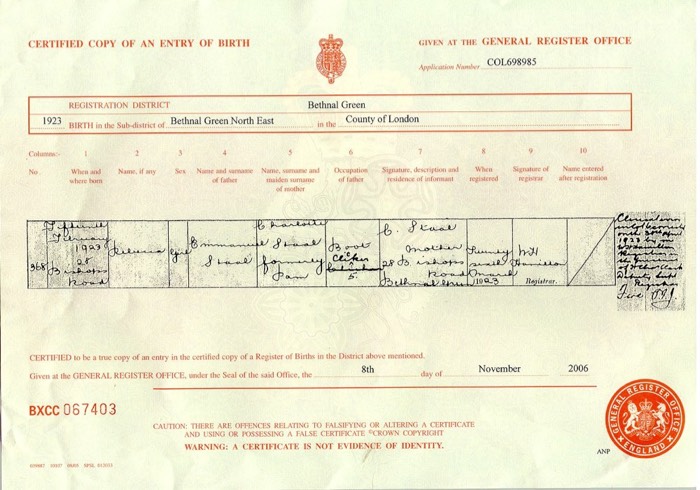 CERTIFIED COPY OF AN ENTRY OF BIRTH
GIVEN AT THE GENERAL REGISTER OFFICE
Application Number COL698985
REGISTRATION DISTRICT Bethnal Green
1923 BIRTH in the Sub-district of Bethnal Green North East in the County of London
Columns:- 1 2 3 4 5 6 7 8 9 10
No. When and where born Name, if any Sex Name and surname of father Name, surname and maiden surname of mother Occupation of father Signature, description and residence of informant When registered Signature of registrar Name entered after registration
368
February
1923
28
Bishops
Road
Girl
Emmanuel
Staal
Charlotte
Staal
formerly
Boot
Clicker
C. Staal
Mother
28 Bishops
Road
Bethnal Green
March
1923
Hamilton
Registrar.
CERTIFIED to be a true copy of an entry in the certified copy of a Register of Births in the District above mentioned.
Given at the GENERAL REGISTER OFFICE, under the Seal of the said Office, the 8th day of November 2006
BXCC 067403
CAUTION: THERE ARE OFFENCES RELATING TO FALSIFYING OR ALTERING A CERTIFICATE
AND USING OR POSSESSING A FALSE CERTIFICATE ©CROWN COPYRIGHT
WARNING: A CERTIFICATE IS NOT EVIDENCE OF IDENTITY.
GENERAL REGISTER OFFICE
ENGLAND
ANP